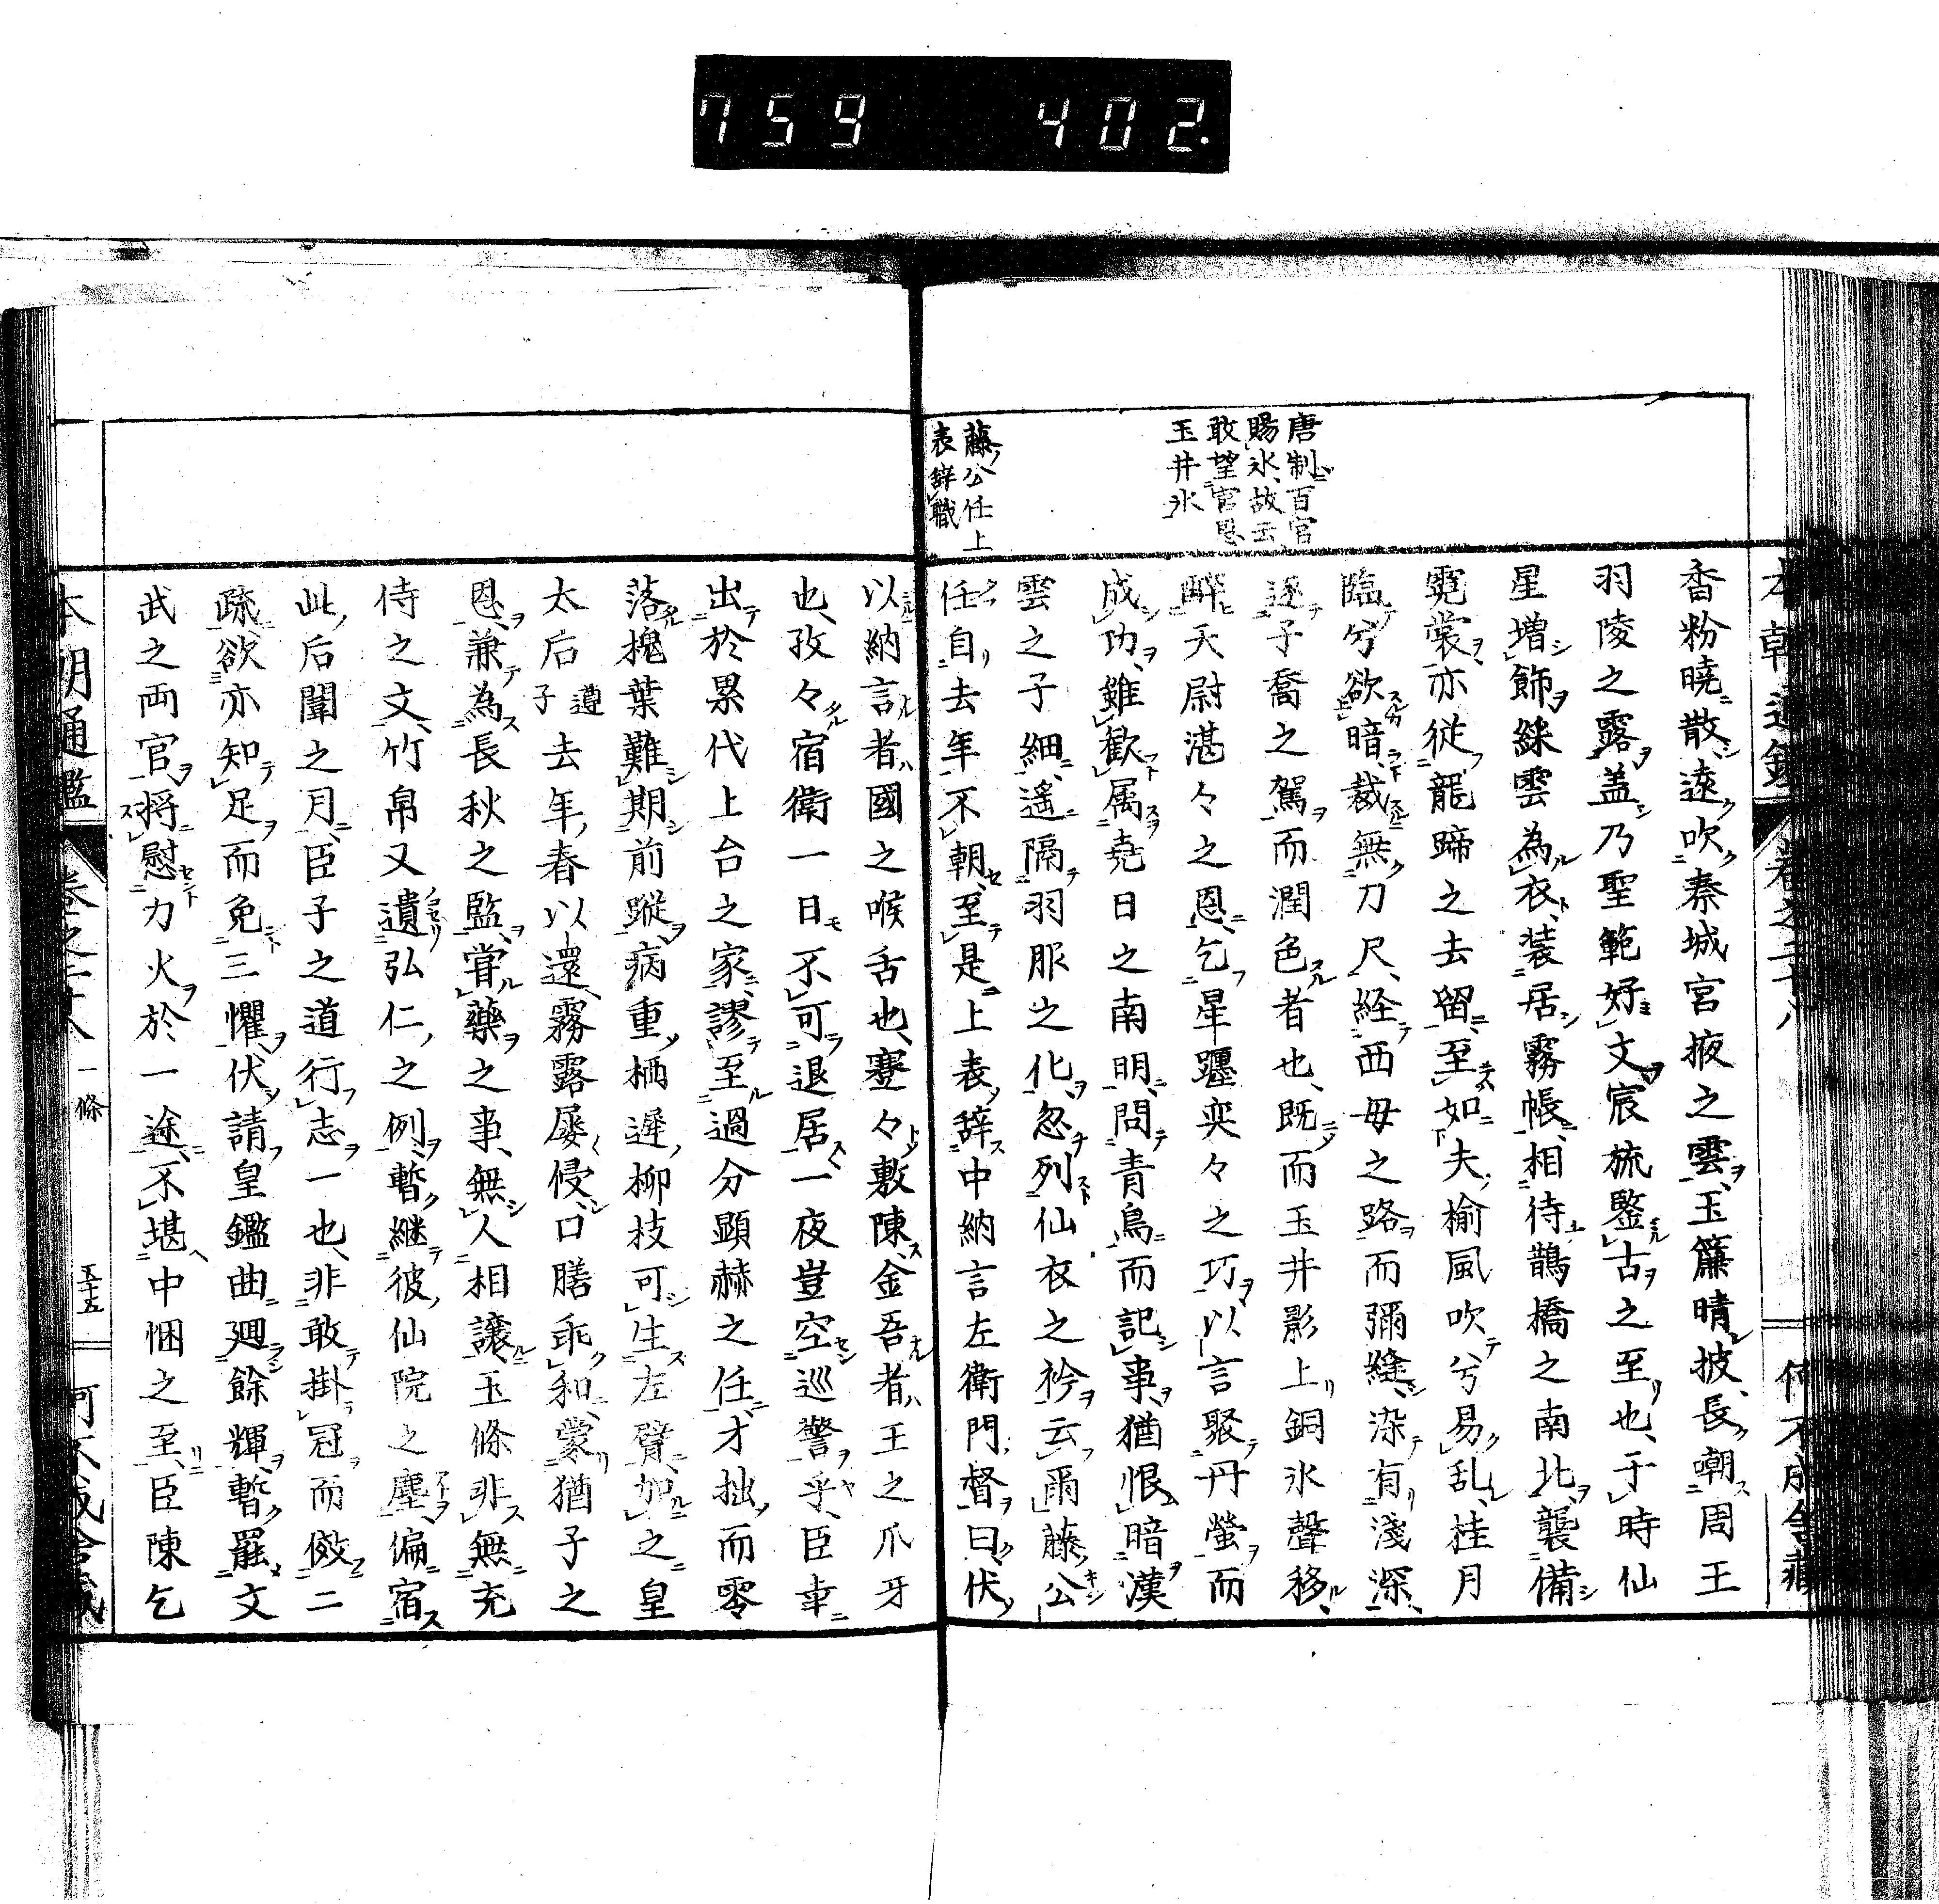 759 402.
本朝通鑑 卷之二十八 何不成舍藏
唐制百官
賜氷、故云
敢望官恩
玉井氷
藤公任上
表辭職
香粉曉散、遠吹秦城宮掖之雲、玉簾晴披、長嘲周王
羽陵之露、盖乃聖範好文、宸旒鑒古之至也、于時仙
星増飾、綵雲為衣、装居霧帳、相待鵲橋之南北、襲備
霓裳、亦從龍蹄之去留、至如夫楡風吹兮易乱、桂月
臨兮欲暗、裁無刀尺、経西母之路而彌縫、染有淺深、
逐子喬之駕而潤色者也、既而玉井影上、銅氷聲移、
醉天尉湛々之恩、乞牽躔奕々之巧、以言聚丹螢而
成功、雖歡属堯日之南明、問青鳥而記事、猶恨暗漢
雲之子細、遥隔羽服之化、忽列仙衣之衿、云爾、藤公
任自去年不朝、至是上表辞中納言左衛門督曰、伏
以納言者、國之喉舌也、蹇々敷陳、金吾者、王之爪牙
也、孜々宿衛、一日不可退居、一夜豈空巡警乎、臣幸
出於累代上台之家、謬至過分顯赫之任、才拙而零
落、槐葉難期前蹤、病重栖遲、柳枝可生左臂、加之皇
太后遵子去年春以還、霧露屡侵、口膳乖和、蒙猶子之
恩、兼為長秋之監、甞藥之事、無人相譲、玉條非無充
侍之文、竹帛又遺弘仁之例、暫継彼仙院之塵、偏宿
此后闈之月、臣子之道、行志一也、非敢掛冠而倣二
疏、欲亦知足而免三懼、伏請皇鑑曲廻餘輝、暫罷文
武之両官、将慰力火於一途、不堪中悃之至、臣陳乞
本朝通鑑 卷之二十八 一條 五十五 何不成舍藏